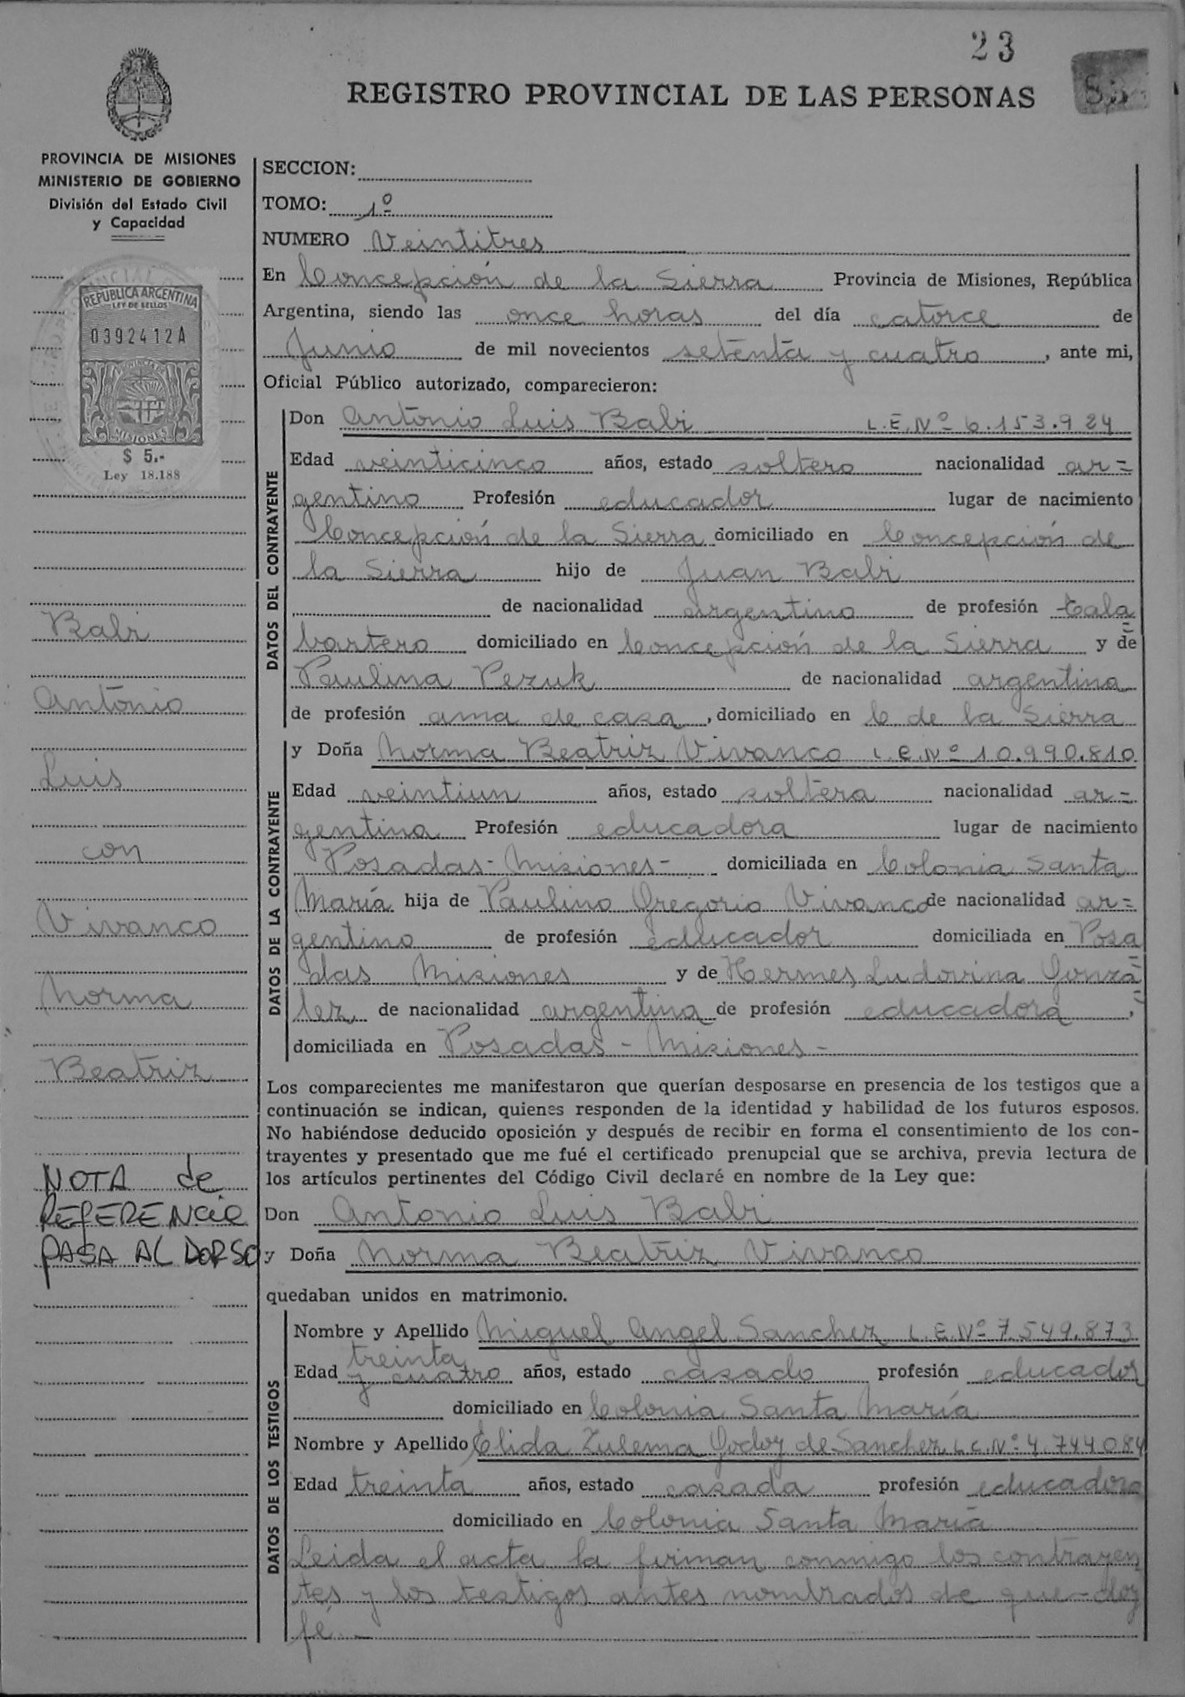 23
REGISTRO PROVINCIAL DE LAS PERSONAS
PROVINCIA DE MISIONES
MINISTERIO DE GOBIERNO
División del Estado Civil
y Capacidad
REPUBLICA ARGENTINA
LEY DE SELLOS
0392412A
MISIONES
$ 5.-
Ley 18.188
Babi
Antonio
Luis
con
Vivanco
Norma
Beatriz
NOTA de
REFERENCIA
PASA AL DORSO
SECCION:
TOMO: 1º
NUMERO Veintitres
En Concepción de la Sierra Provincia de Misiones, República
Argentina, siendo las once horas del día catorce de
Junio de mil novecientos setenta y cuatro, ante mi,
Oficial Público autorizado, comparecieron:
DATOS DEL CONTRAYENTE
Don Antonio Luis Babi L.E.Nº 6.153.924
Edad veinticinco años, estado soltero nacionalidad ar=
gentino Profesión educador lugar de nacimiento
Concepción de la Sierra domiciliado en Concepción de
la Sierra hijo de Juan Babi
de nacionalidad argentino de profesión tala
bartero domiciliado en Concepción de la Sierra y de
Paulina Pezuk de nacionalidad argentina
de profesión ama de casa, domiciliado en C de la Sierra
DATOS DE LA CONTRAYENTE
y Doña Norma Beatriz Vivanco L.C.Nº 10.990.810
Edad veintiun años, estado soltera nacionalidad ar=
gentina Profesión educadora lugar de nacimiento
Posadas - Misiones - domiciliada en Colonia Santa
María hija de Paulino Gregorio Vivanco de nacionalidad ar=
gentino de profesión educador domiciliada en Posa
das Misiones y de Hermes Ludovina Gonzá=
lez de nacionalidad argentina de profesión educadora,
domiciliada en Posadas - Misiones -
Los comparecientes me manifestaron que querían desposarse en presencia de los testigos que a
continuación se indican, quienes responden de la identidad y habilidad de los futuros esposos.
No habiéndose deducido oposición y después de recibir en forma el consentimiento de los con-
trayentes y presentado que me fué el certificado prenupcial que se archiva, previa lectura de
los artículos pertinentes del Código Civil declaré en nombre de la Ley que:
Don Antonio Luis Babi
y Doña Norma Beatriz Vivanco
quedaban unidos en matrimonio.
DATOS DE LOS TESTIGOS
Nombre y Apellido Miguel Angel Sanchez L.E.Nº 7.549.873
Edad treinta y cuatro años, estado casado profesión educador
domiciliado en Colonia Santa María
Nombre y Apellido Elida Zulema Godoy de Sanchez L.C.Nº 4.744084
Edad treinta años, estado casada profesión educadora
domiciliado en Colonia Santa María
Leida el acta la firman conmigo los contrayen
tes y los testigos antes nombrados de que doy
fé.-